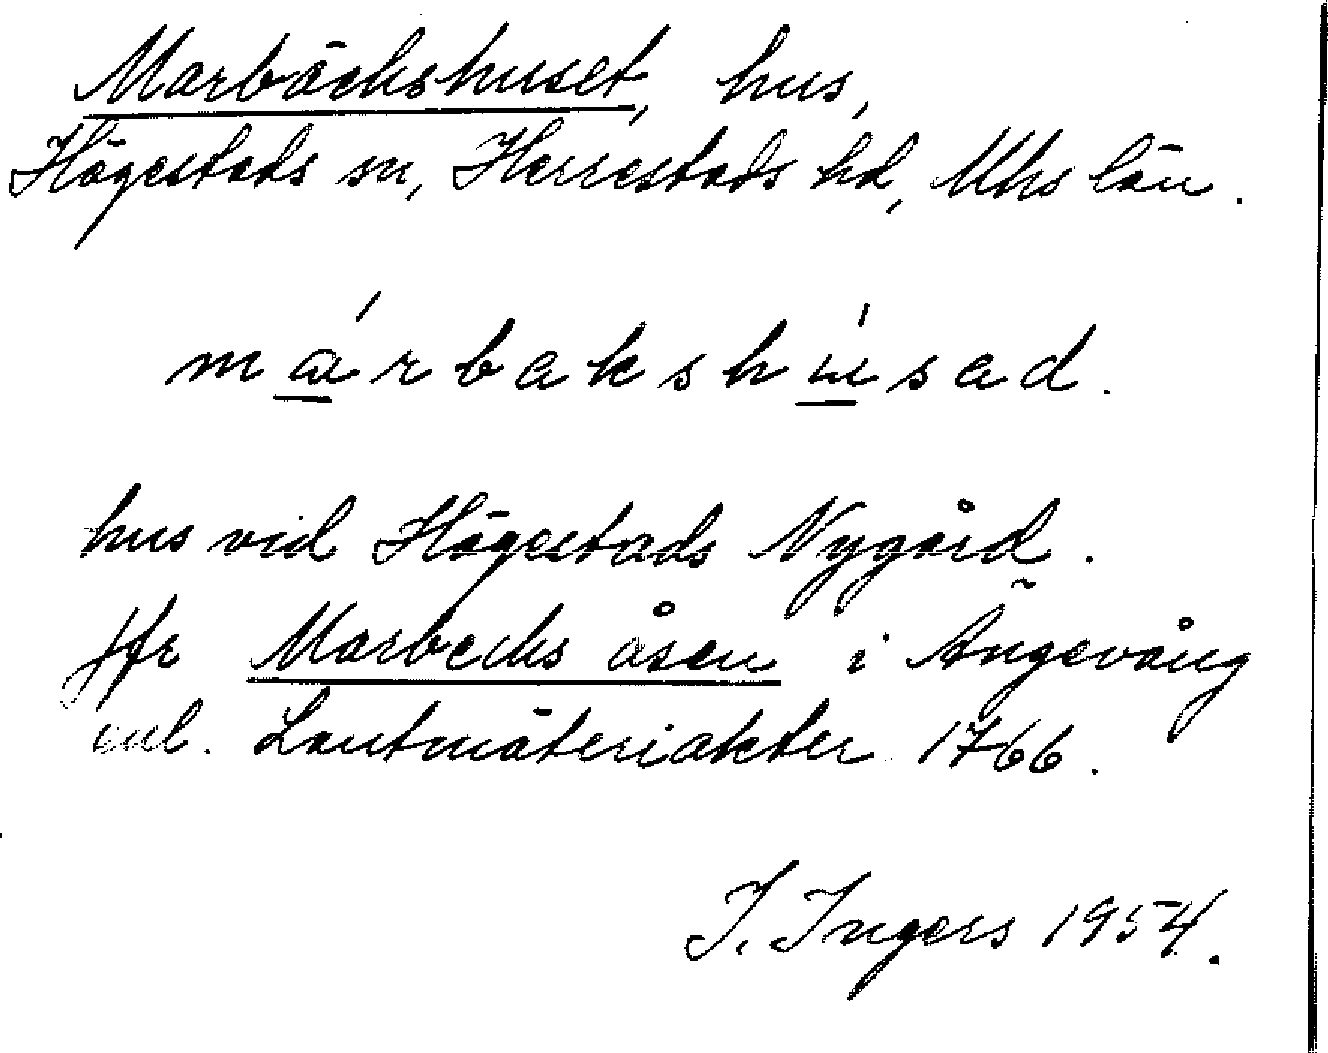 Marbäckshuset, hus,
Högestads sn, Herrestads hd, Mhs län.
márbakshúsad.
hus vid Högestads Nygård.
Jfr Marbecks åsen i Ängevång
enl. Lantmäteriakter 1766.
I. Ingers 1954.